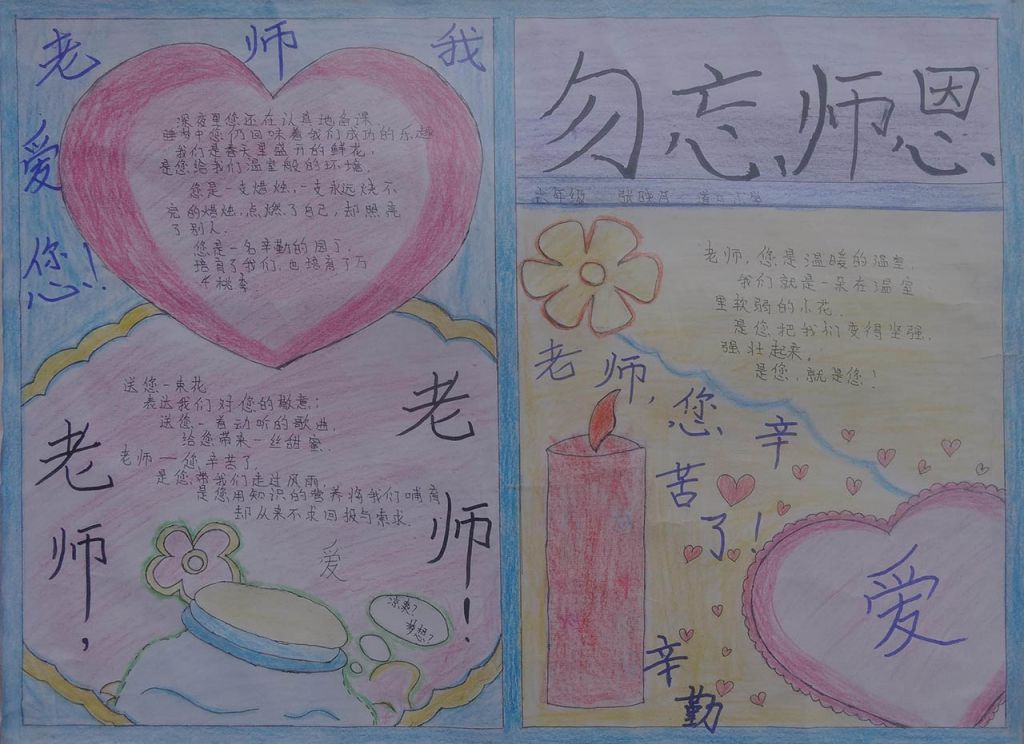 老师我
爱
您!
深夜里您还在认真地备课
睡梦中您仍回味着我们成功的乐趣
我们是春天里盛开的鲜花,
是您给我们温室般的环境。
您是一支蜡烛,一支永远烧不
完的蜡烛,点燃了自己,却照亮
了别人.
您是一名辛勤的园丁.
培育了我们,也培育了万
千桃李.
送您一束花
表达我们对您的敬意;
送您一首动听的歌曲,
给您带来一丝甜蜜.
老师——您辛苦了
是您带我们走过风雨,
是您用知识的营养将我们哺育
却从来不求回报与索求.
老师,
老师!
爱
梦想?
勿忘师恩
六年级
小学
老师,您是温暖的温室,
我们就是一朵在温室
里软弱的小花.
是您把我们变得坚强,
强壮起来,
是您,就是您!
老师,您辛
苦
了!
辛
勤
爱